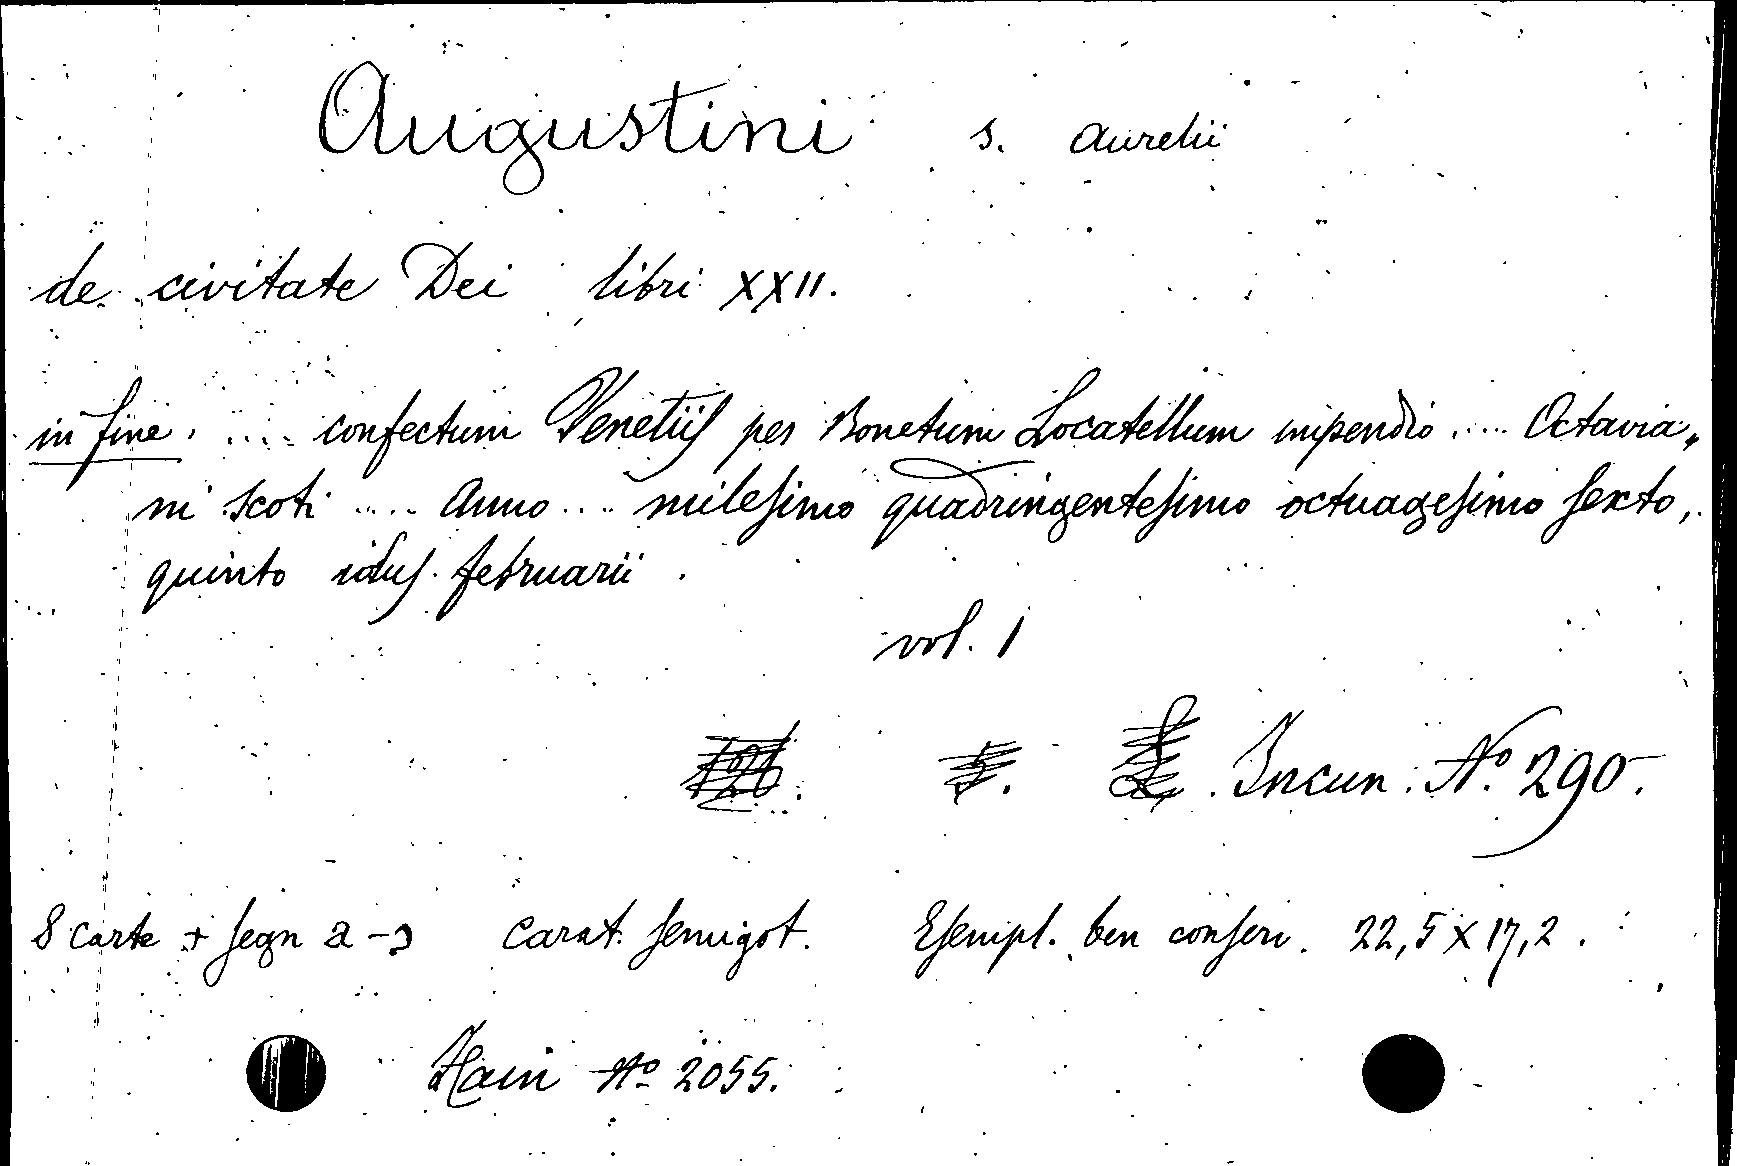 Augustini s. Aurelii
de civitate Dei libri XXII.
in fine. .... confectum Venetiis per Bonetum Locatellum impendio .... Octavia„
ni Scoti .... Anno .... milesimo quadringentesimo octuagesimo sexto,
quinto idus februarii.
vol. 1
Incun. Nº. 290.
8 carte + segn a - Carat. semigot. Esempl. ben conserv. 22,5 X 17,2.
Hain Nº 2055.